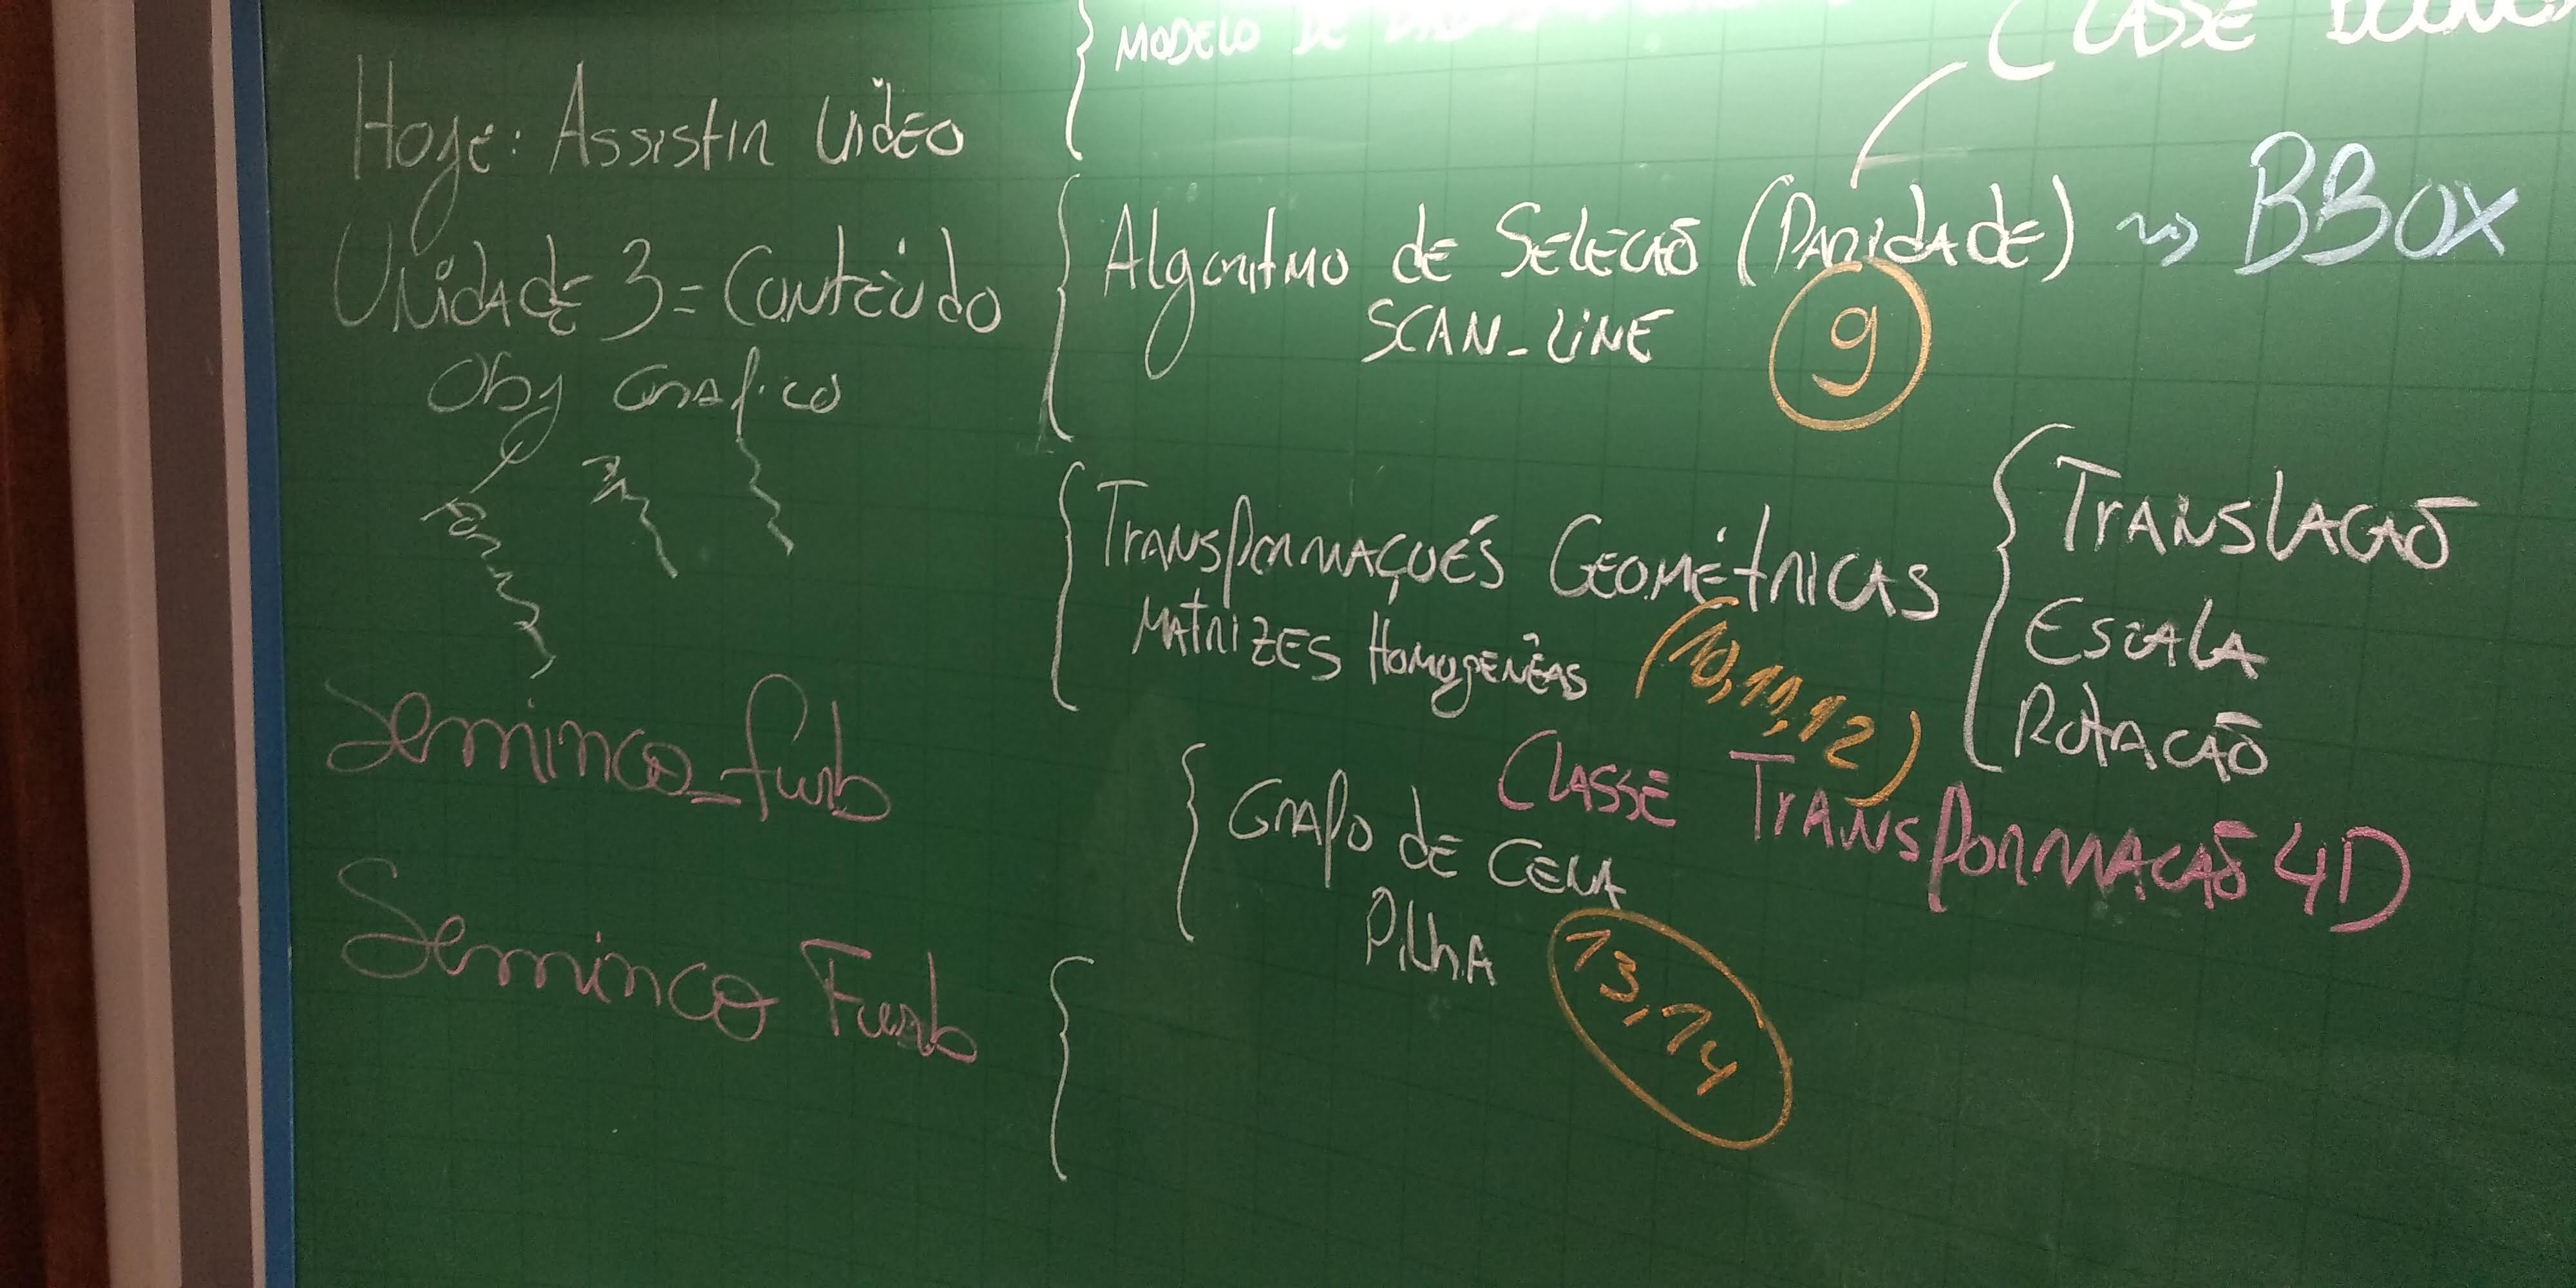 Hoje: Assistir vídeo
Unidade 3 = Conteúdo
Obj Gráfico
Seminco_furb
Seminco Furb
MODELO DE
CLASSE
Algoritmo de Seleção (Paridade) ~> BBox
SCAN_LINE
9
Transformaçoés Geométricas
Matrizes Homogenêas
(10,11,12)
Translação
Escala
Rotação
Classe Transformação 4D
Grafo de Cena
Pilha
13,14